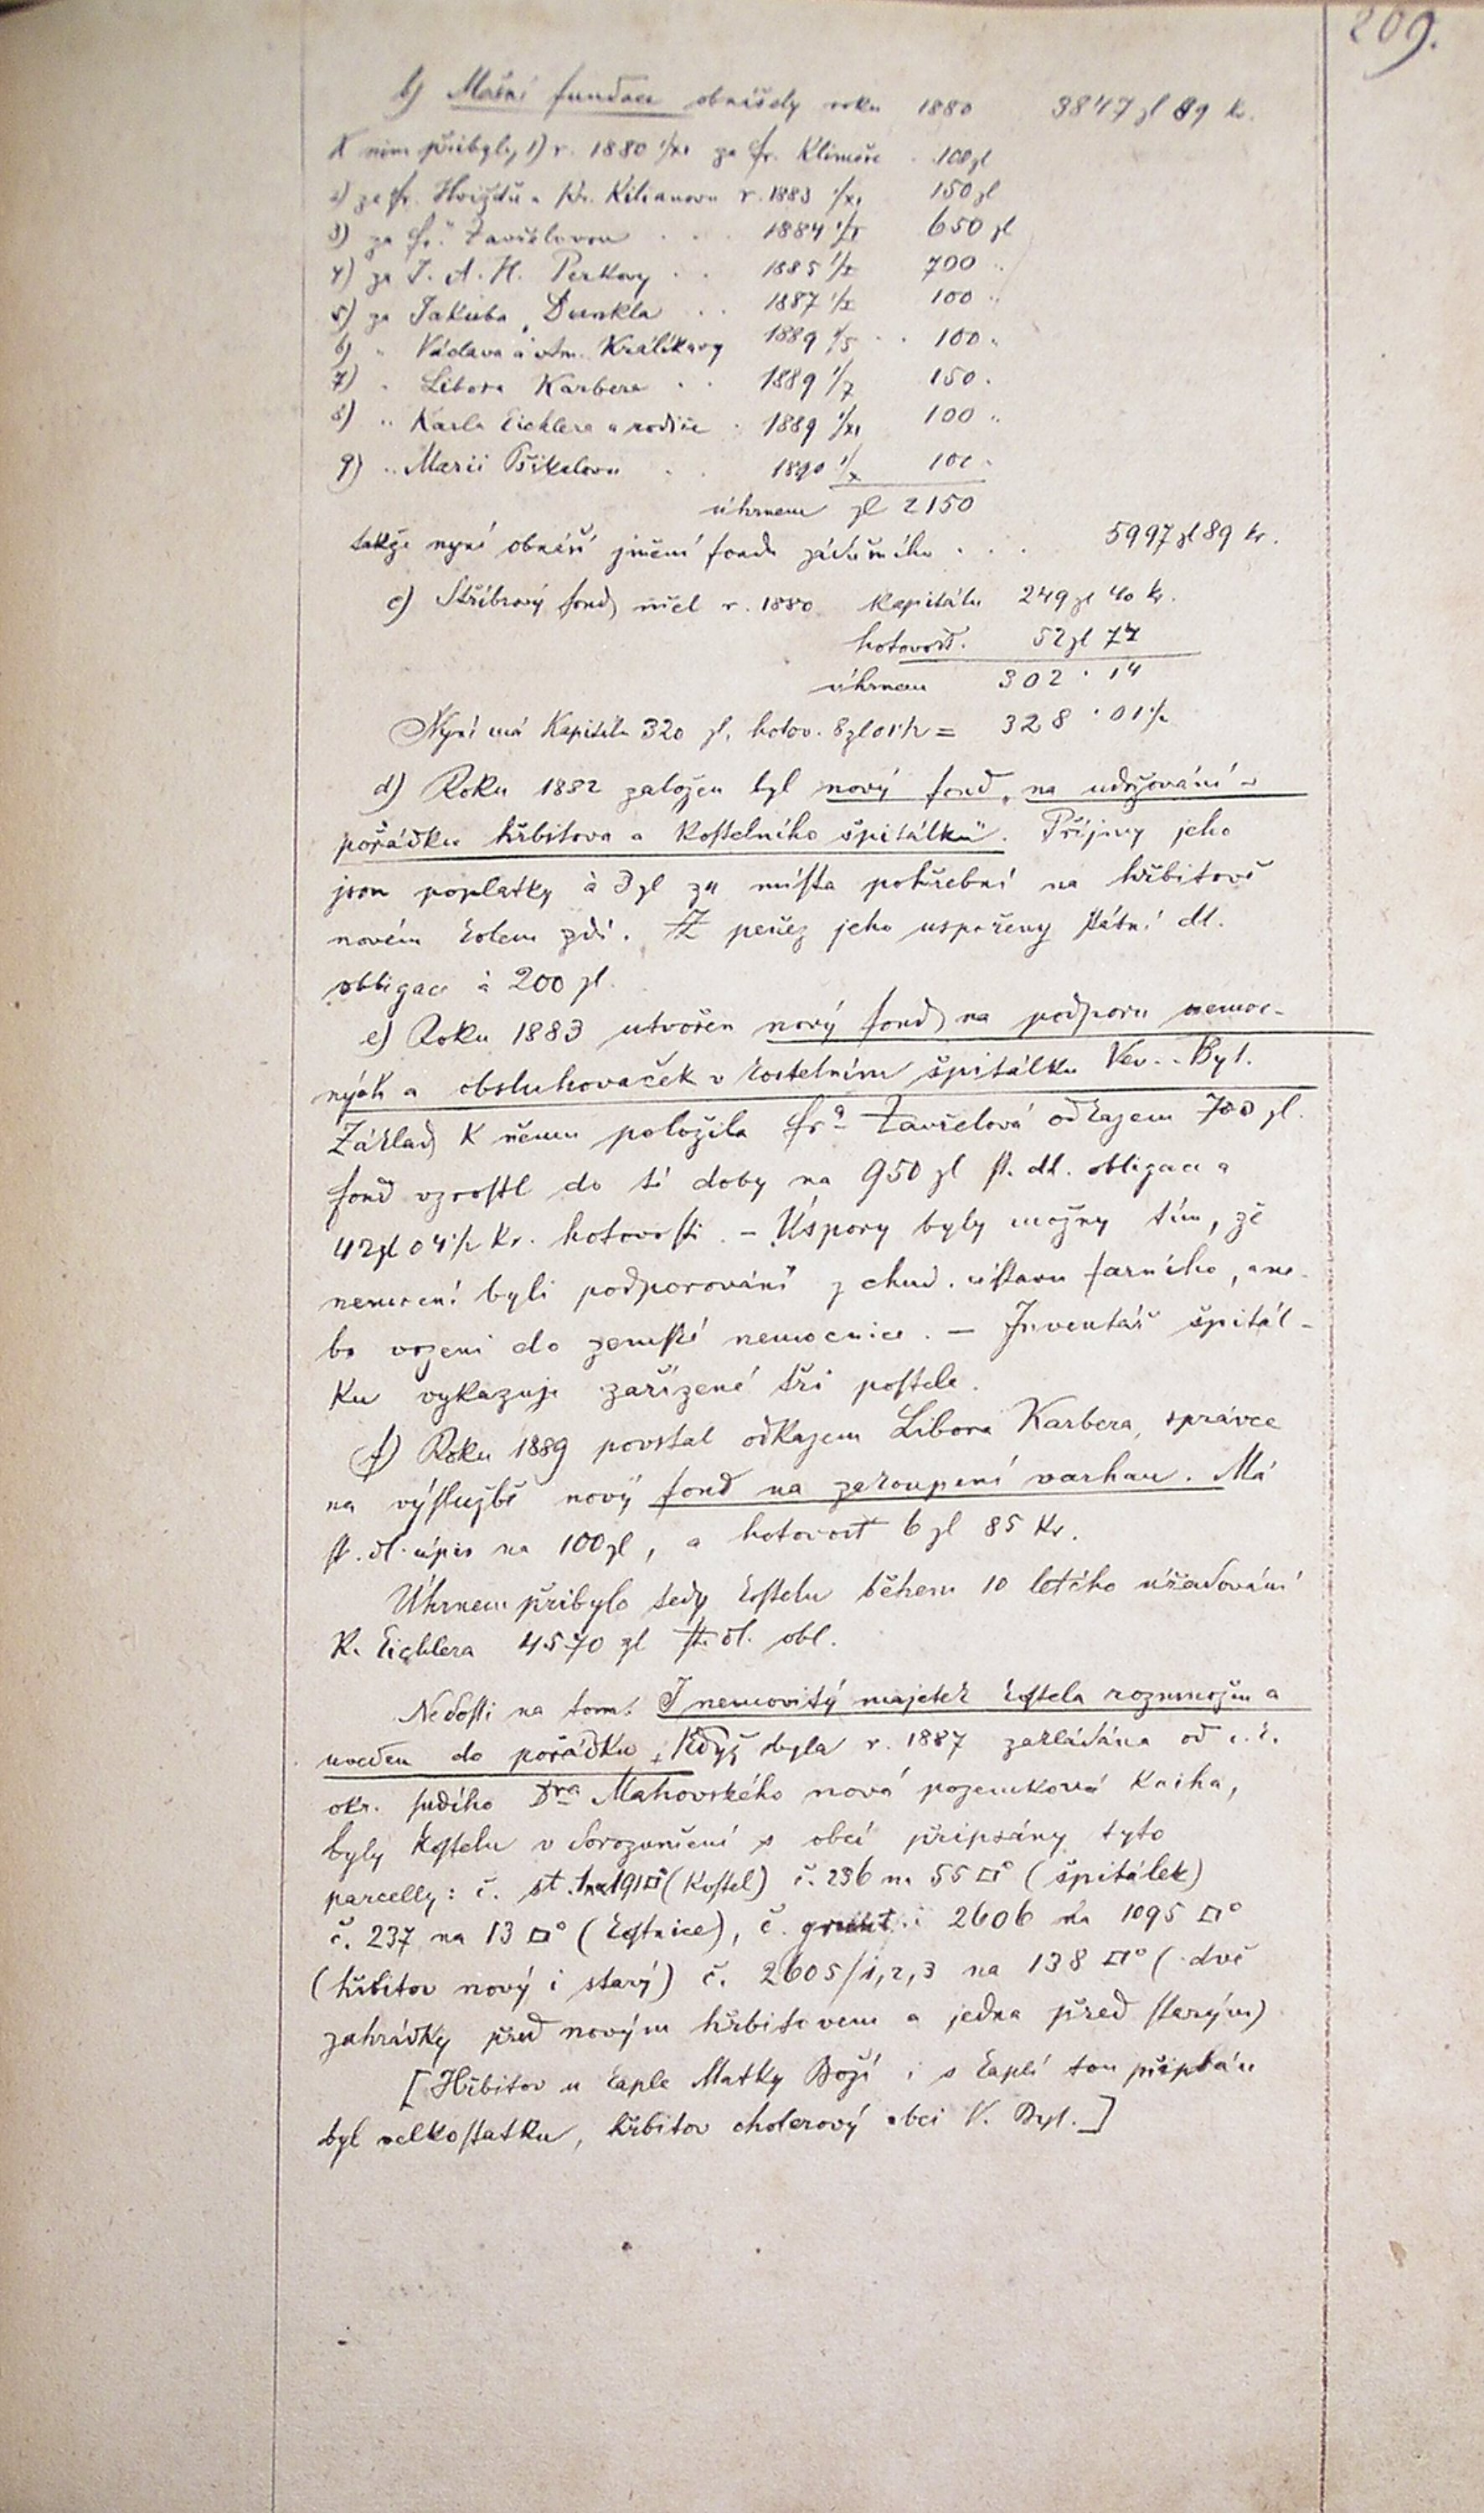 209.
b) Mešní fundace obnášely roku 1880 3847 zl 89 kr.
K nim přibyly 1) r. 1880 1/XI za fr. Klimeše . 100 zl
2) za fr. Hvižďů a Kilianovu r. 1883 1/XI 150 zl
3) za fr. Zavřelovou . . . 1884 1/X 650 zl
4) za J. A. H. Perkovy . . 1885 1/X 700 "
5) za Jakuba Dunkla . . 1887 1/X 100 "
6) " Václava a Králíkovy 1889 1/5 . . 100 "
7) " Libora Karbera . . 1889 1/7 150 "
8) " Karla Eichlera a rodiče . 1889 1/XI 100 "
9) " Marii Pšikalovu . . 1890 1/X 100 "
úhrnem zl 2150
takže nyní obnáší jmění fondu zádušního . . . 5997 zl 89 kr.
c) Stříbrový fond měl r. 1880 Kapitálu 249 zl 40 kr.
hotovost. 52 zl 74
úhrnem 302 . 14
Nyní má Kapitálu 320 zl, hotov. 8 zl 01 1/2 = 328 . 01 1/2
d) Roku 1882 založen byl nový fond „na udržování
pořádku hřbitova a Kostelního špitálku". Příjmy jeho
jsou poplatky à 3 zl za místa pohřební na hřbitově
novém kolem zdi. Z peněz jeho uspořeny státní dl.
obligace à 200 zl.
e) Roku 1883 utvořen nový fond na podporu nemoc-
ných a obsluhovaček v kostelním špitálku Vev. Byt.
Základ K němu položila fra Zavřelová odkazem 700 zl.
fond vzrostl do té doby na 950 zl st. dl. obligace a
42 zl 04 1/2 Kr. hotovosti. – Úspory byly možny tím, že
nemocní byli podporováni z chud. ústavu farního, ane-
bo vozeni do zemské nemocnice. – Inventář špitál-
ku vykazuje zařízené tři postele.
f) Roku 1889 povstal odkazem Libora Karbera, správce
na výslužbě nový fond na zakoupení varhan. Má
st. dl. úpis na 100 zl, a hotovost 6 zl 85 Kr.
Úhrnem přibylo tedy kostelu během 10 letého úřadování
K. Eichlera 4570 zl st. dl. obl.
Nedosti na tom! I nemovitý majetek kostela rozmnožen a
uveden do pořádku. Když byla r. 1887 zakládána od c. k.
okr. sudího Dra Mahovského nová pozemková Kniha,
byly Kostelu v dorozumění s obcí připsány tyto
parcelly: č. st. 1 na 191 □° (Kostel) č. 236 na 55 □° (špitálek)
č. 237 na 13 □° (kostnice), č. grunt. 2606 na 1095 □°
(hřbitov nový i starý) č. 2605/1,2,3 na 138 □° (dvě
zahrádky před novým hřbitovem a jedna před starým)
[Hřbitov u kaple Matky Boží i s kaplí tou připsán
byl velkostatku, hřbitov cholerový obci V. Byt.]